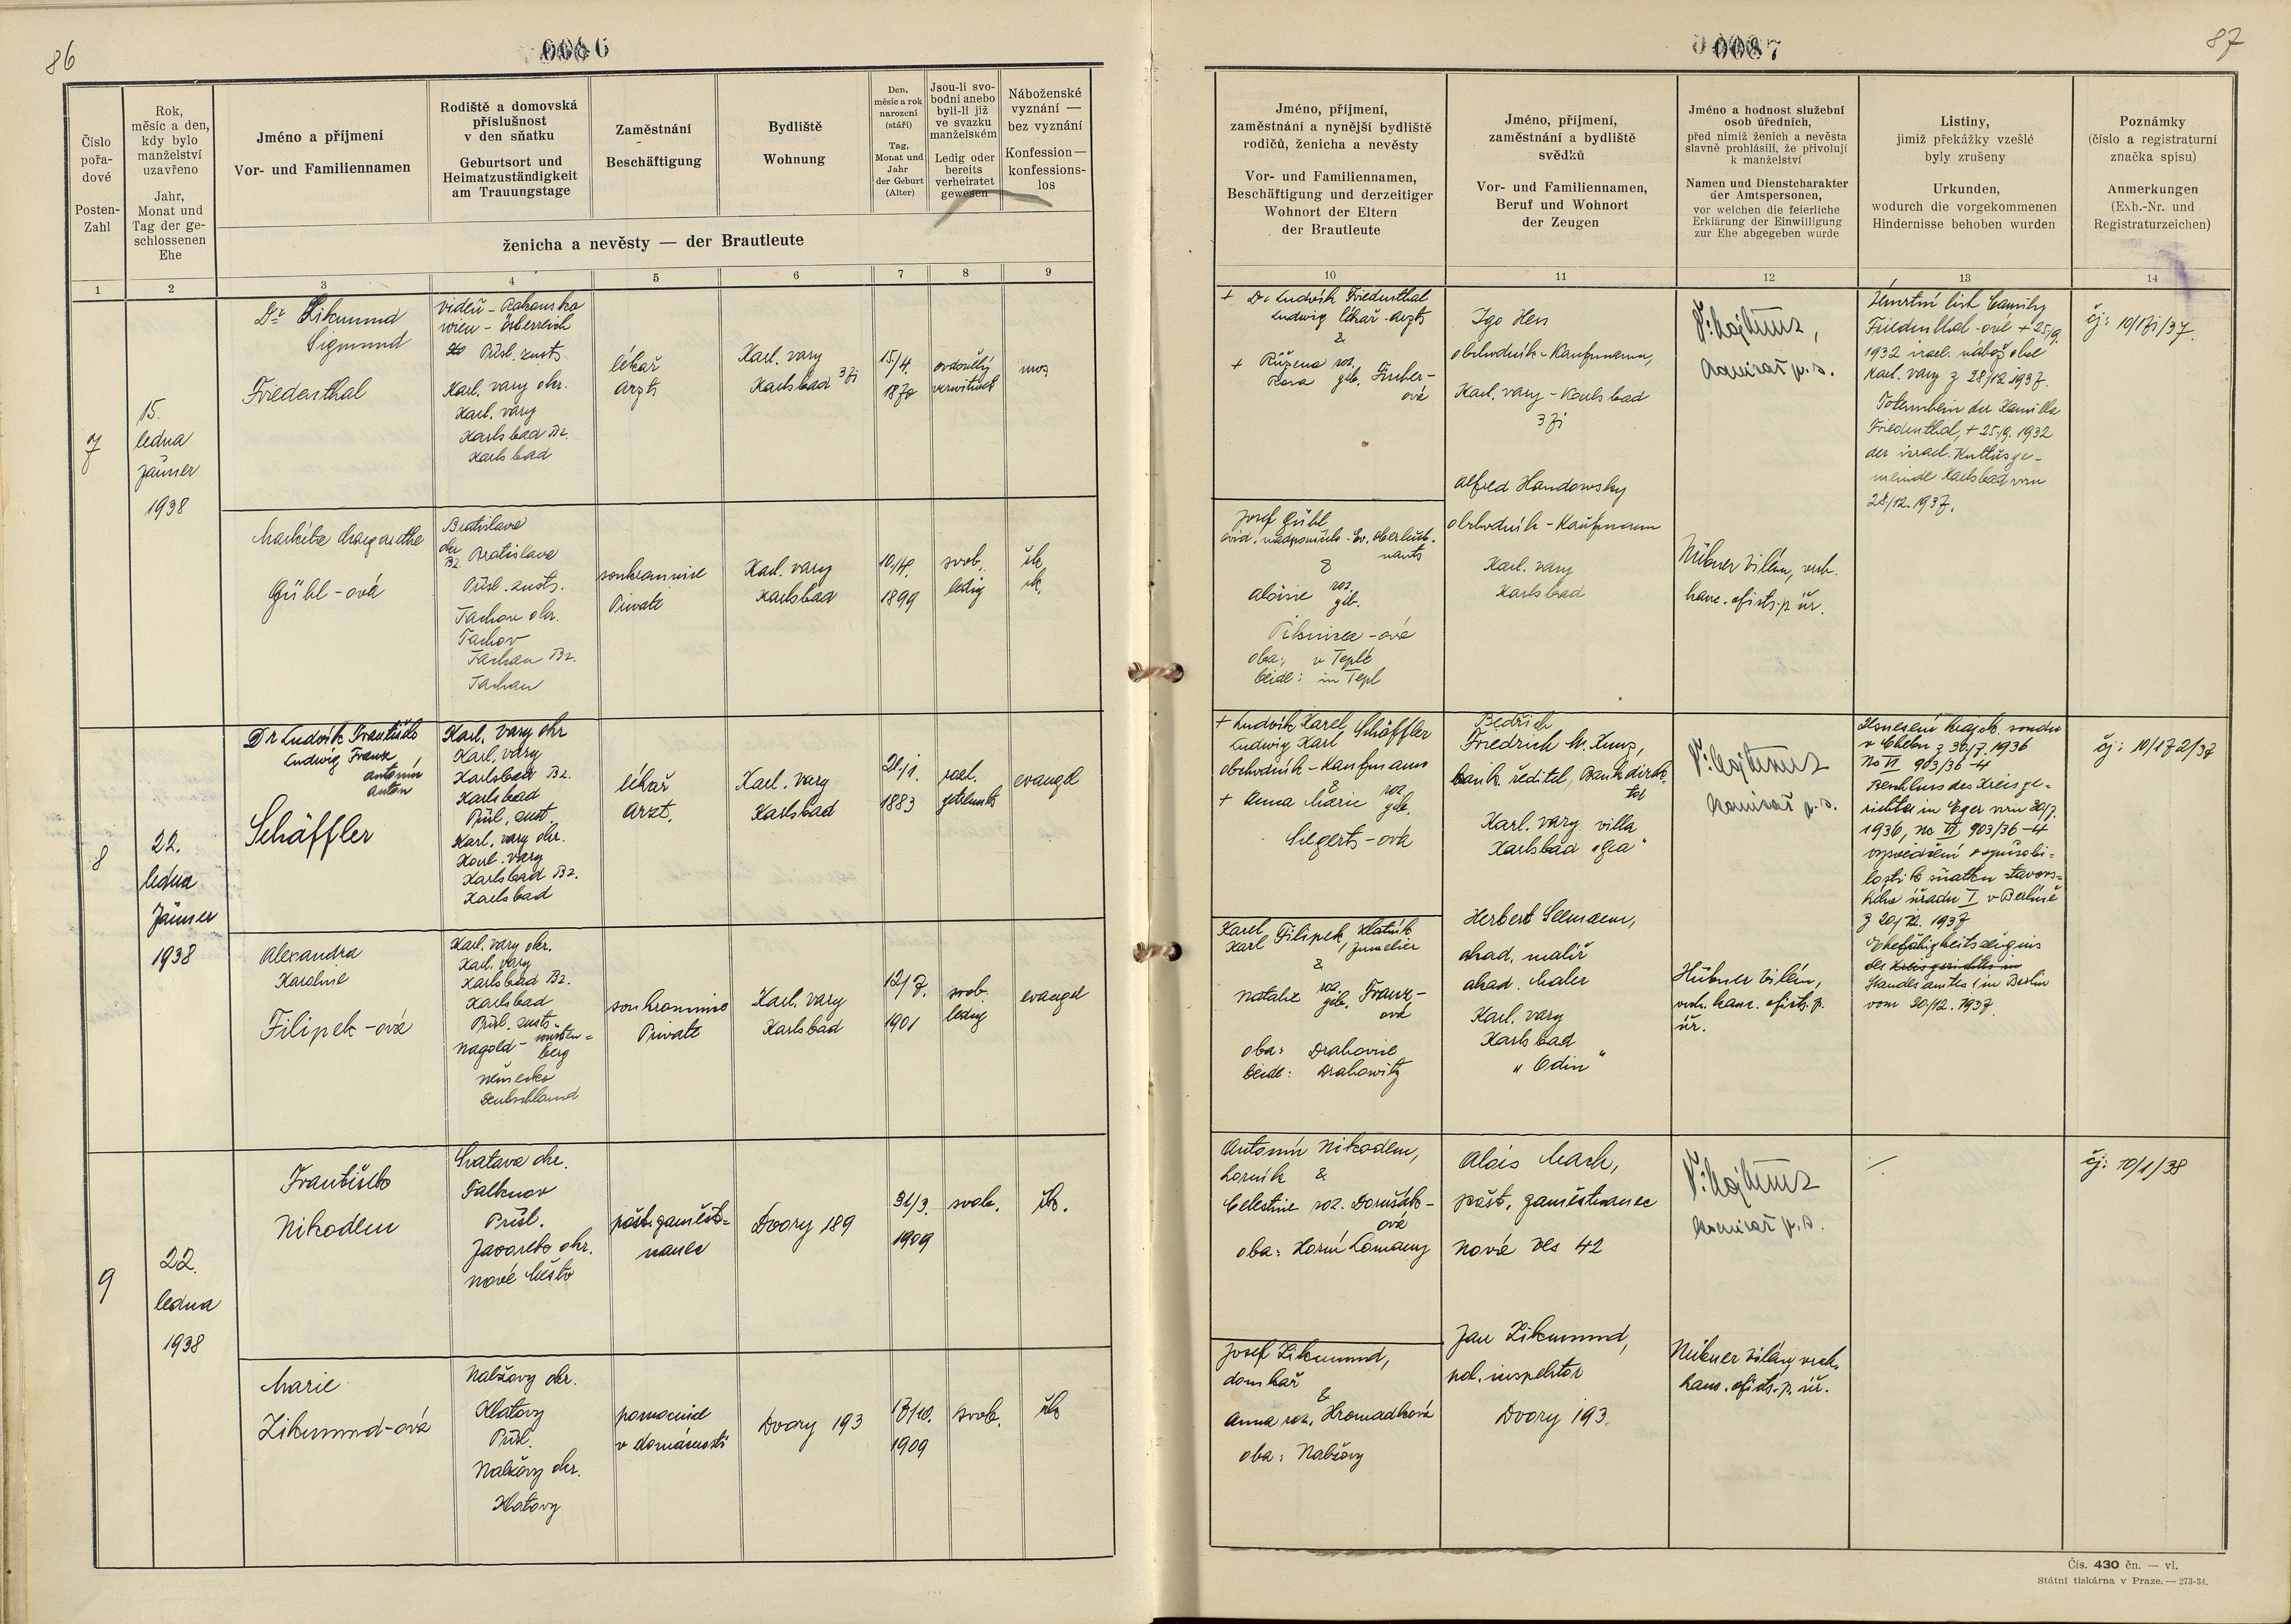 86
0086
Číslo
pořa-
dové
Posten-
Zahl
Rok,
měsíc a den,
kdy bylo
manželství
uzavřeno
Jahr,
Monat und
Tag der ge-
schlossenen
Ehe
Jméno a příjmení
Vor- und Familiennamen
Rodiště a domovská
příslušnost
v den sňatku
Geburtsort und
Heimatzuständigkeit
am Trauungstage
Zaměstnání
Beschäftigung
Bydliště
Wohnung
Den,
měsíc a rok
narození
(stáří)
Tag,
Monat und
Jahr
der Geburt
(Alter)
Jsou-li svo-
bodni anebo
byli-li již
ve svazku
manželském
Ledig oder
bereits
verheiratet
gewesen
Náboženské
vyznání —
bez vyznání
Konfession —
konfessions-
los
ženicha a nevěsty — der Brautleute
1 2 3 4 5 6 7 8 9
7
15.
ledna
Jänner
1938
Dr Zikmund
Sigmund
Friedenthal
Vídeň - Rakousko
Wien - Österreich
Přísl. zust.
Karl. vary okr.
Karl. vary
Karlsbad Bz.
Karlsbad
lékař
Arzt
Karl. vary
Karlsbad
15/4.
1870
ovdovělý
verwitwet
mos.
Markéta Margarethe
Gühl-ová
Bratislava
okr.
Bz. Bratislava
Přísl. zust.
Tachov okr.
Tachov
Tachau Bz.
Tachau
soukromnice
Private
Karl. vary
Karlsbad
10/4.
1899
svob.
ledig
řk.
rk.
8
22.
ledna
Jänner
1938
Dr Ludvík František
Ludwig Franz,
Antonín
Anton
Schäffler
Karl. vary okr
Karl. vary
Karlsbad Bz.
Karlsbad
Přísl. zust.
Karl. vary okr.
Karl. vary
Karlsbad Bz.
Karlsbad
lékař
Arzt.
Karl. vary
Karlsbad
21/1.
1883
rozl.
getrennt
evangel
Alexandra
Karoline
Filipek-ová
Karl. vary okr.
Karl. vary
Karlsbad Bz.
Karlsbad
Přísl. zust.
Nagold - Württem=
berg
Německo
Deutschland
soukromnice
Private
Karl. vary
Karlsbad
12/7.
1901
svob.
ledig
evangel
9
22.
ledna
1938
František
Nikodem
Svatava okr.
Falknov
Přísl.
Javorek okr.
Nové Město
pošt. zaměst=
nanec
Dvory 189
31/3.
1909
svob.
řk.
Marie
Zikmund-ová
Nalžovy okr.
Klatovy
Přísl.
Nalžovy okr.
Klatovy
pomocnice
v domácnosti
Dvory 193
13/10.
1909
svob.
řk
87
0087
Jméno, příjmení,
zaměstnání a nynější bydliště
rodičů, ženicha a nevěsty
Vor- und Familiennamen,
Beschäftigung und derzeitiger
Wohnort der Eltern
der Brautleute
Jméno, příjmení,
zaměstnání a bydliště
svědků
Vor- und Familiennamen,
Beruf und Wohnort
der Zeugen
Jméno a hodnost služební
osob úředních,
před nimiž ženich a nevěsta
slavně prohlásili, že přivolují
k manželství
Namen und Dienstcharakter
der Amtspersonen,
vor welchen die feierliche
Erklärung der Einwilligung
zur Ehe abgegeben wurde
Listiny,
jimiž překážky vzešlé
byly zrušeny
Urkunden,
wodurch die vorgekommenen
Hindernisse behoben wurden
Poznámky
(číslo a registraturní
značka spisu)
Anmerkungen
(Exh.-Nr. und
Registraturzeichen)
10 11 12 13 14
+ Dr Ludvík Friedenthal
Ludwig lékař - Arzt
&
+ Růžena roz.
Rosa geb. Finber-
ová
Igo Hess
obchodník - Kaufmann,
Karl. vary - Karlsbad
Alfred Handowsky
obchodník - Kaufmann
Karl. vary
Karlsbad
komisař p. s.
Hübner Vilém, vrch.
kanc. ofic. p. úř.
Úmrtní list Camilly
Friedenthal-ové + 25/9.
1932 israel. nábož. obce
Karl. vary z 28/12 1937.
Totenschein der Kamilla
Friedenthal, + 25./9. 1932
der israel. Kultusge-
meinde Karlsbad vom
28/12. 1937.
čj: 10/171/37.
Josef Gühl
&
Aloisie roz.
geb.
oba: v Teplé
beide: in Tepl
+ Ludvík Karel Schäffler
Ludwig Karl
obchodník - Kaufmann
&
+ Anna Marie roz.
geb.
Siegerts-ová
Bedřich
Friedrich M. Kunz,
bank. ředitel, Bankdirek-
tor
Karl. vary villa
Karlsbad
Herbert Seemann,
akad. malíř
akad. Maler
Karl. vary
Karlsbad
„Odin“
komisař p. s.
Hübner Vilém,
vrch. kanc. ofic. p.
úř.
Usnesení kraj. soudu
v Chebu z 30./7. 1936
No VI 903/36-4
Beschluss des Kreisge-
richtes in Eger vom 30/7.
1936, No VI, 903/36-4
vysvědčení o způsobi=
losti k sňatku stavov=
ského úřadu I v Berlíně
z 20/12. 1937
Ehefähigkeitszeugnis
des Kreisgerichtes in
Standesamtes I in Berlin
vom 20./12. 1937.
čj: 10/172/37
Karel
Karl Filipek, zlatník
Juwelier
&
Natalie roz.
geb. Franz-
ová
oba: Drahovice
beide: Drahowitz
Antonín Nikodem,
horník &
Celestine roz.
oba: Horní Lomany
Alois Mach,
pošt. zaměstnanec
Nová Ves 42
Jan Zikmund,
pol. inspektor
Dvory 193.
komisař p. s.
Hübner Vilém, vrch.
kanc. ofic. p. úř.
./.
čj: 10/1/38
Josef Zikmund,
domkař
&
Anna roz. Hromadková
oba: Nalžovy
Čís. 430 čn. — vl.
Státní tiskárna v Praze. — 273-34.